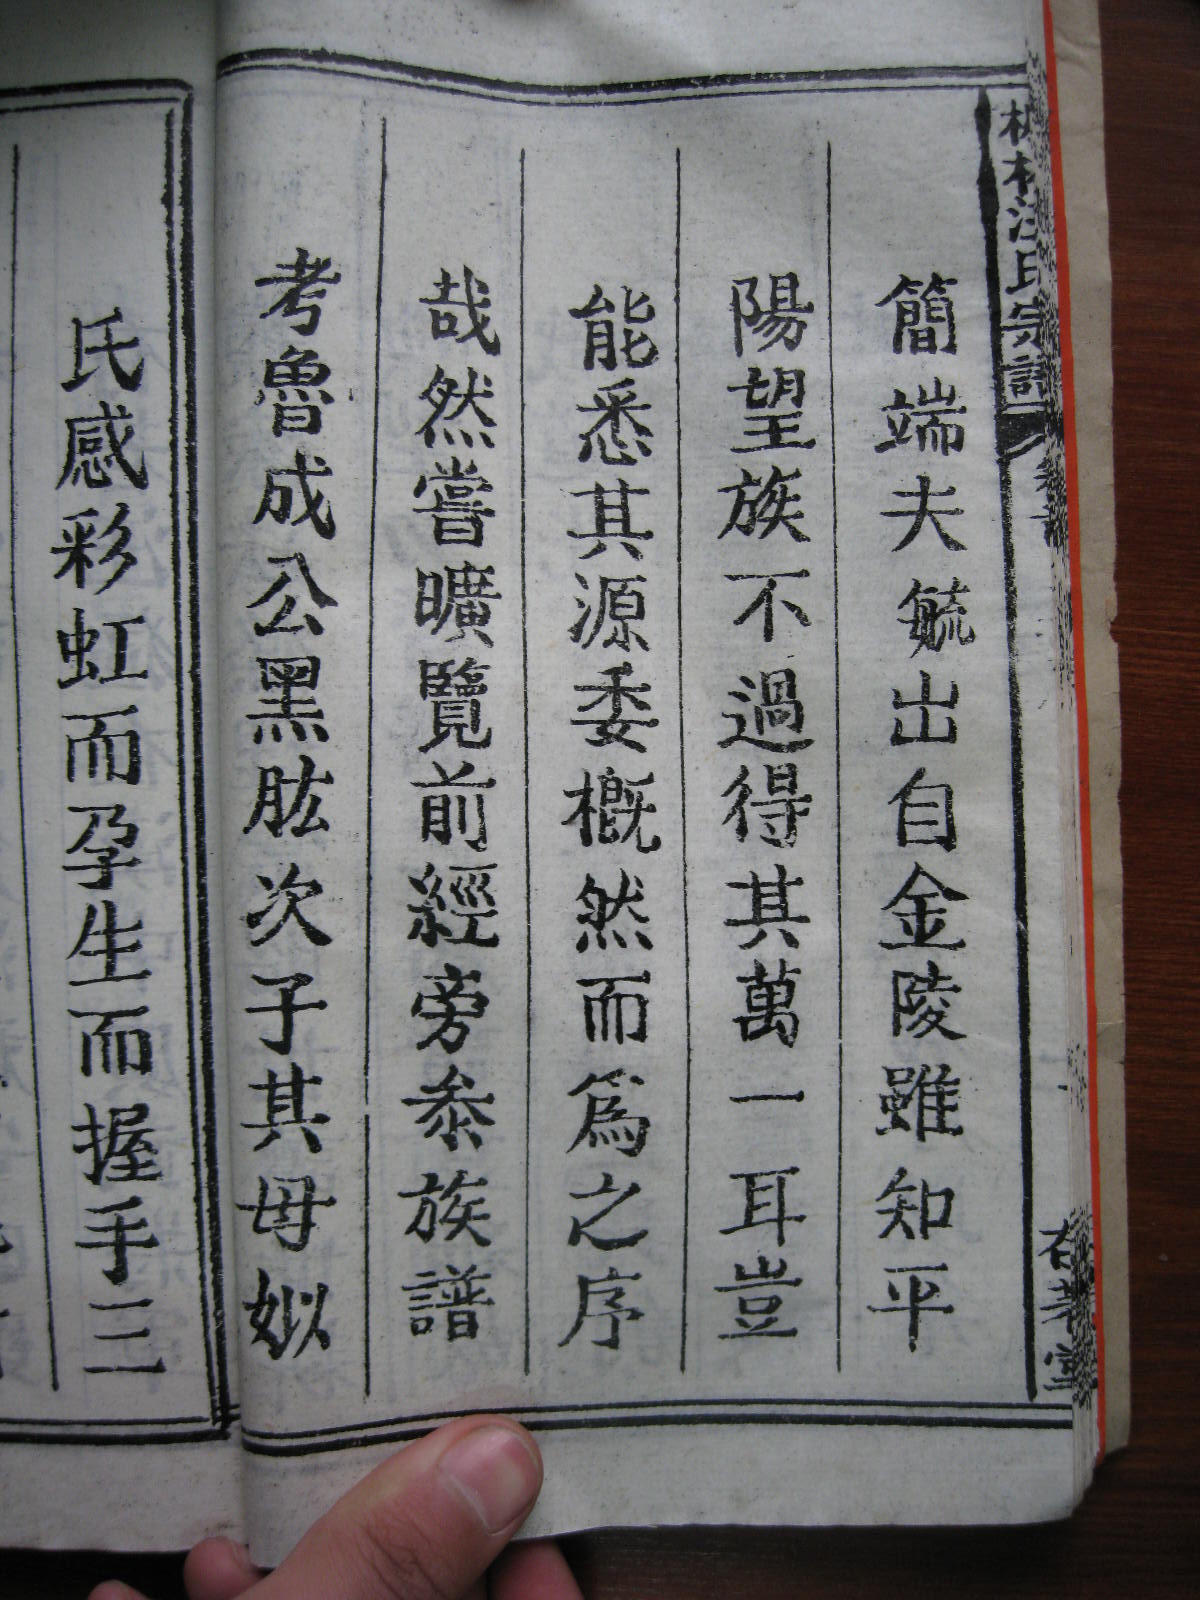 簡端夫毓出自金陵雖知平
陽望族不過得其萬一耳豈
能悉其源委概然而為之序
哉然嘗曠覽前經旁叅族譜
考魯成公黑肱次子其母姒
氏感彩虹而孕生而握手三